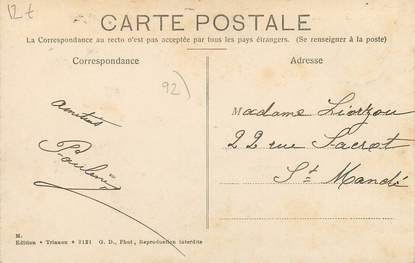 12t
CARTE POSTALE
La Correspondance au recto n'est pas acceptée par tous les pays étrangers. (Se renseigner à la poste)
Correspondance
Adresse
92)
amitiés
Madame Liorzou
22 rue Sacrot
St Mandé
M.
Edition - Trianon - 3121 G. D., Phot, Reproduction interdite